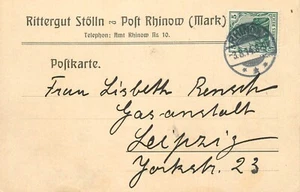 Rittergut Stölln ~ Post Rhinow (Mark)
Telephon: Amt Rhinow № 10.
Postkarte.
Frau Lisbeth Rensch
Gasanstalt
Leipzig
Yorkstr. 23